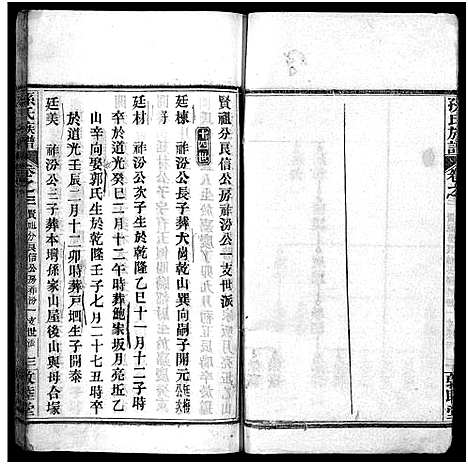 孫氏族譜
卷之三
賢祖分良信公房祚汾公一支世派
十四世
廷棟 祚汾公長子葬大崗乾山巽向嗣子開元
廷材 祚汾公次子生於乾隆乙巳十一月十二子時
卒於道光癸巳二月十二午時葬鮑家坂月亮坵乙
山辛向娶郭氏生於乾隆壬子七月二十七丑時卒
於道光壬辰二月十二卯時葬戸垇生子開泰
廷美 祚汾公三子葬本垇孫家山屋後山與母合塚
孫氏族譜
卷之三
賢祖分良信公房祚汾一支世派
三
敦睦堂